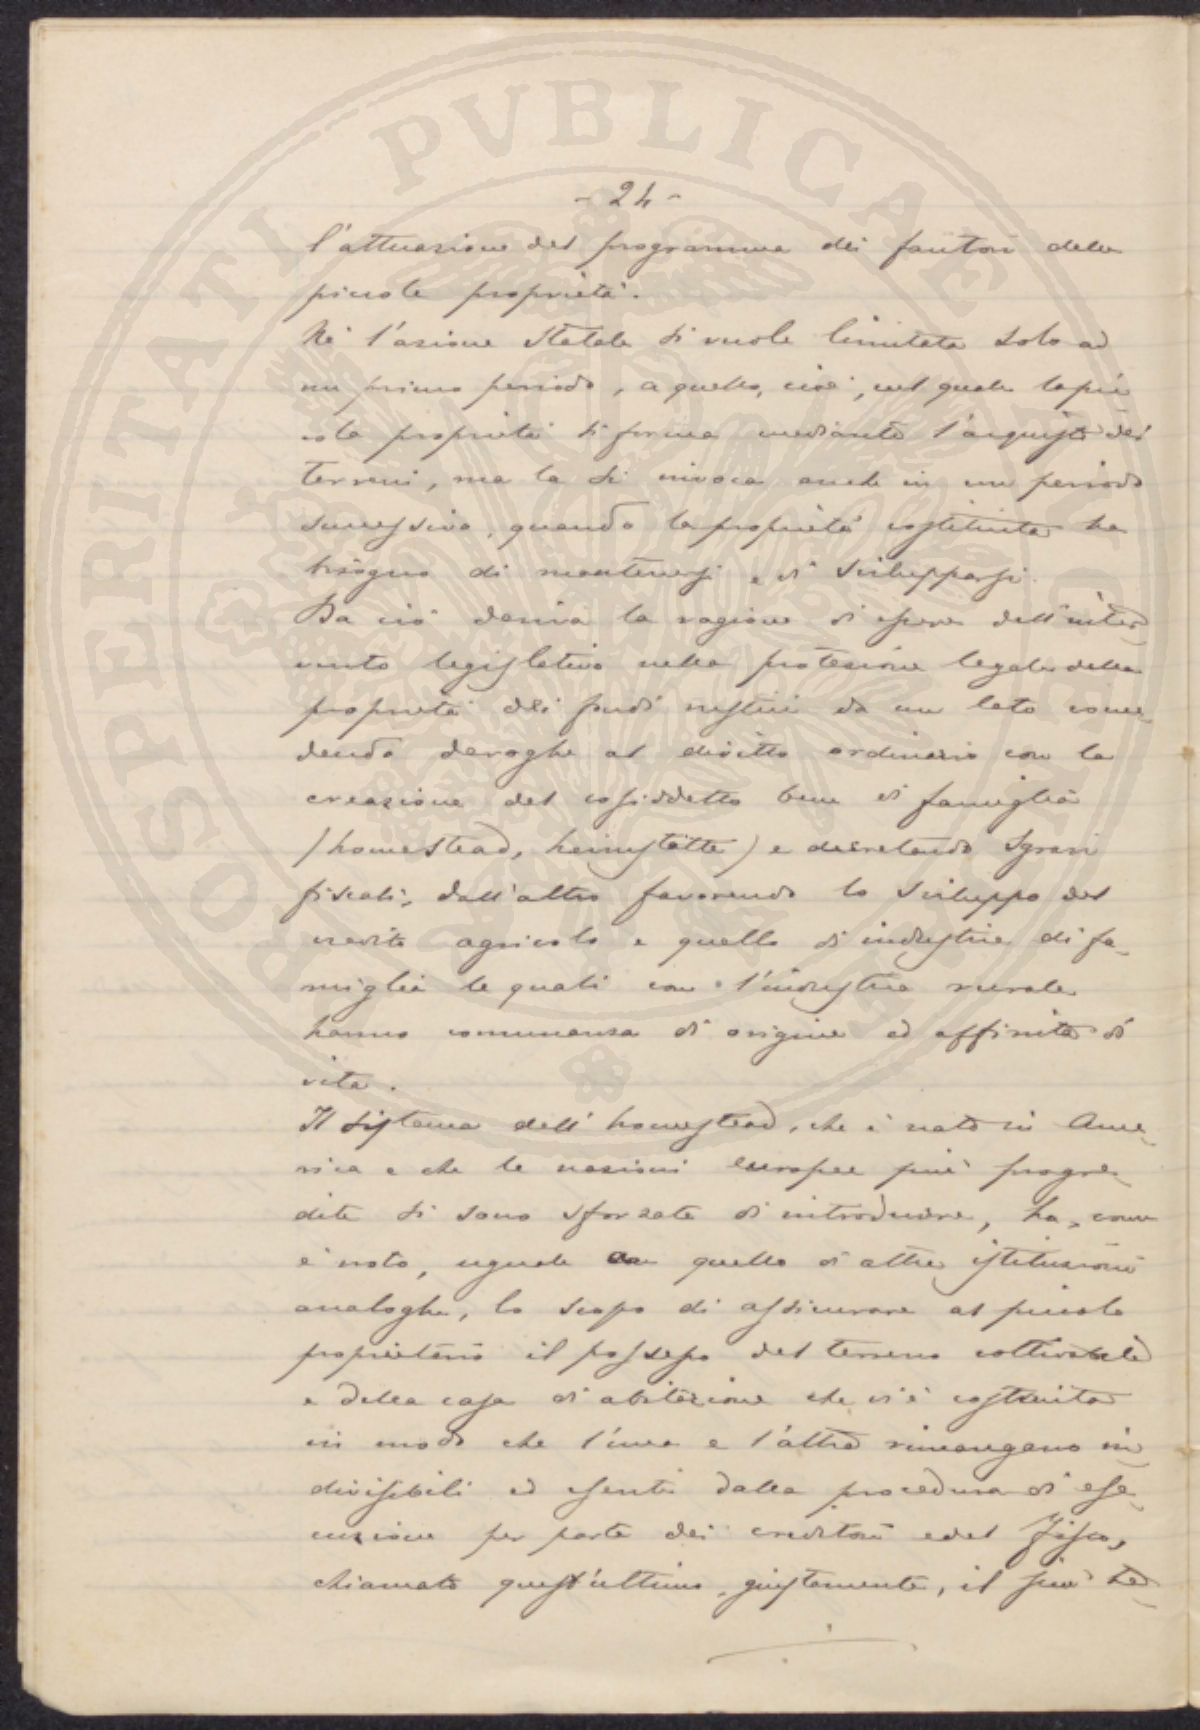 - 24 -
l'attuazione del programma dei fautori della
piccola proprietà.
Nè l'azione statale si vuole limitata solo ad
un primo periodo, a quello, cioè, nel quale la pic
cola proprietà si forma mediante l'acquisto dei
terreni, ma la si invoca anche in un periodo
successivo, quando la proprietà costituita ha
bisogno di mantenersi e di svilupparsi.
Da ciò deriva la ragione di essere dell'inter-
vento legislativo nella protezione legale della
proprietà dei fondi rustici da un lato conce-
dendo deroghe al diritto ordinario con la
creazione del cosiddetto bene di famiglia
(homestead, heimstätte) e decretando sgravi
fiscali, dall'altro favorendo lo sviluppo del
credito agricolo e quello di industrie di fa-
miglia le quali con l'industria rurale
hanno comunanza di origine ed affinità di
vita.
Il sistema dell'homestead, che è nato in Ame-
rica e che le nazioni europee più progre-
dite si sono sforzate di introdurre, ha, come
è noto, uguale a quello di altre istituzioni
analoghe, lo scopo di assicurare al piccolo
proprietario il possesso del terreno coltivabile
e della casa di abitazione che vi è costruita
in modo che l'una e l'altra rimangano in-
divisibili ed esenti dalla procedura di ese-
cuzione per parte dei creditori e del fisco,
chiamato quest'ultimo, giustamente, il più te-
PROSPERITATI PVBLICAE